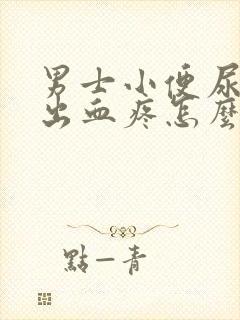 男士小便尿
出血疼怎麼
點一青